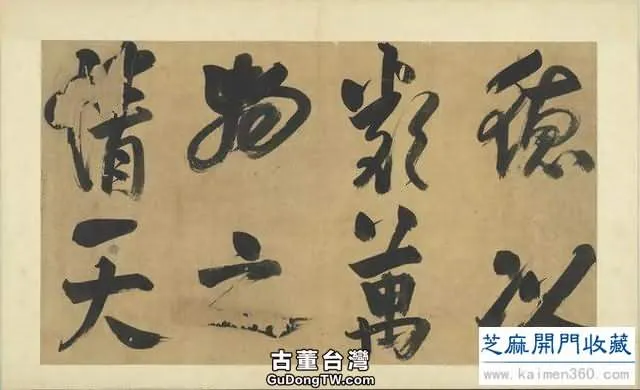 德以
類萬
物之
情天
芝麻開門收藏
www.kaimen360.com
古董台灣
GuDongTW.com